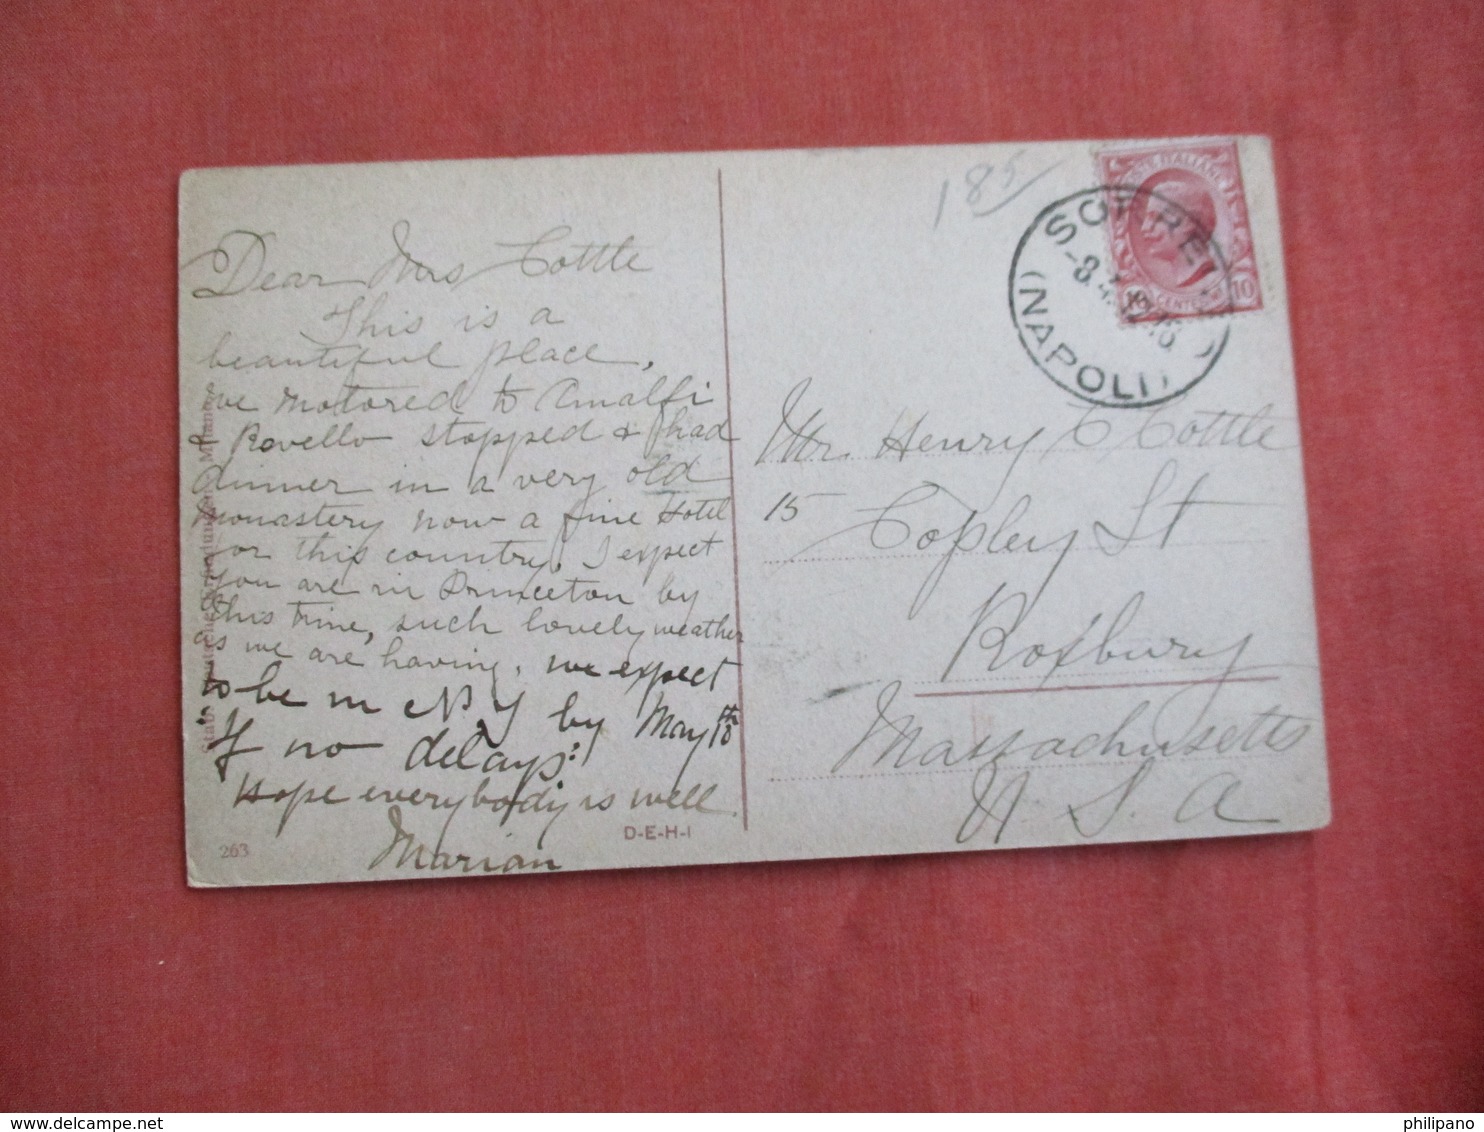 Dear Mrs Cottle
This is a
beautiful place,
we motored to Amalfi
& Rovello stopped & had
dinner in a very old
monastery now a fine Hotel
for this country. I expect
you are in Princeton by
this time, such lovely weather
as we are having, we expect
to be in N Y by May 18th
If no delays:
Hope everybody is well.
Marian
263
D-E-H-I
185
POSTE ITALIANE
10 CENTESIMI 10
SORRENTO
(NAPOLI)
Mr. Henry C Cottle
15 Copley St
Roxbury
Massachusetts
U. S. A
philipano